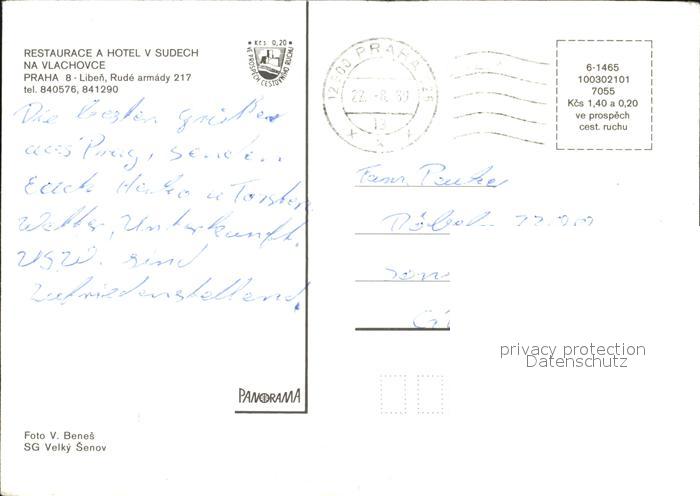 RESTAURACE A HOTEL V SUDECH
NA VLACHOVCE
PRAHA 8 - Libeň, Rudé armády 217
tel. 840576, 841290
Kčs 0,20
VE PROSPĚCH CESTOVNÍHO RUCHU
12000 PRAHA
6-1465
100302101
7055
Kčs 1,40 a 0,20
ve prospěch
cest. ruchu
Die besten Grüße
aus Prag, senden
Euch Heiko u Torsten
Wetter, Unterkunft,
usw. sind
zufriedenstellend.
Fam.
privacy protection
Datenschutz
PANORAMA
Foto V. Beneš
SG Velký Šenov